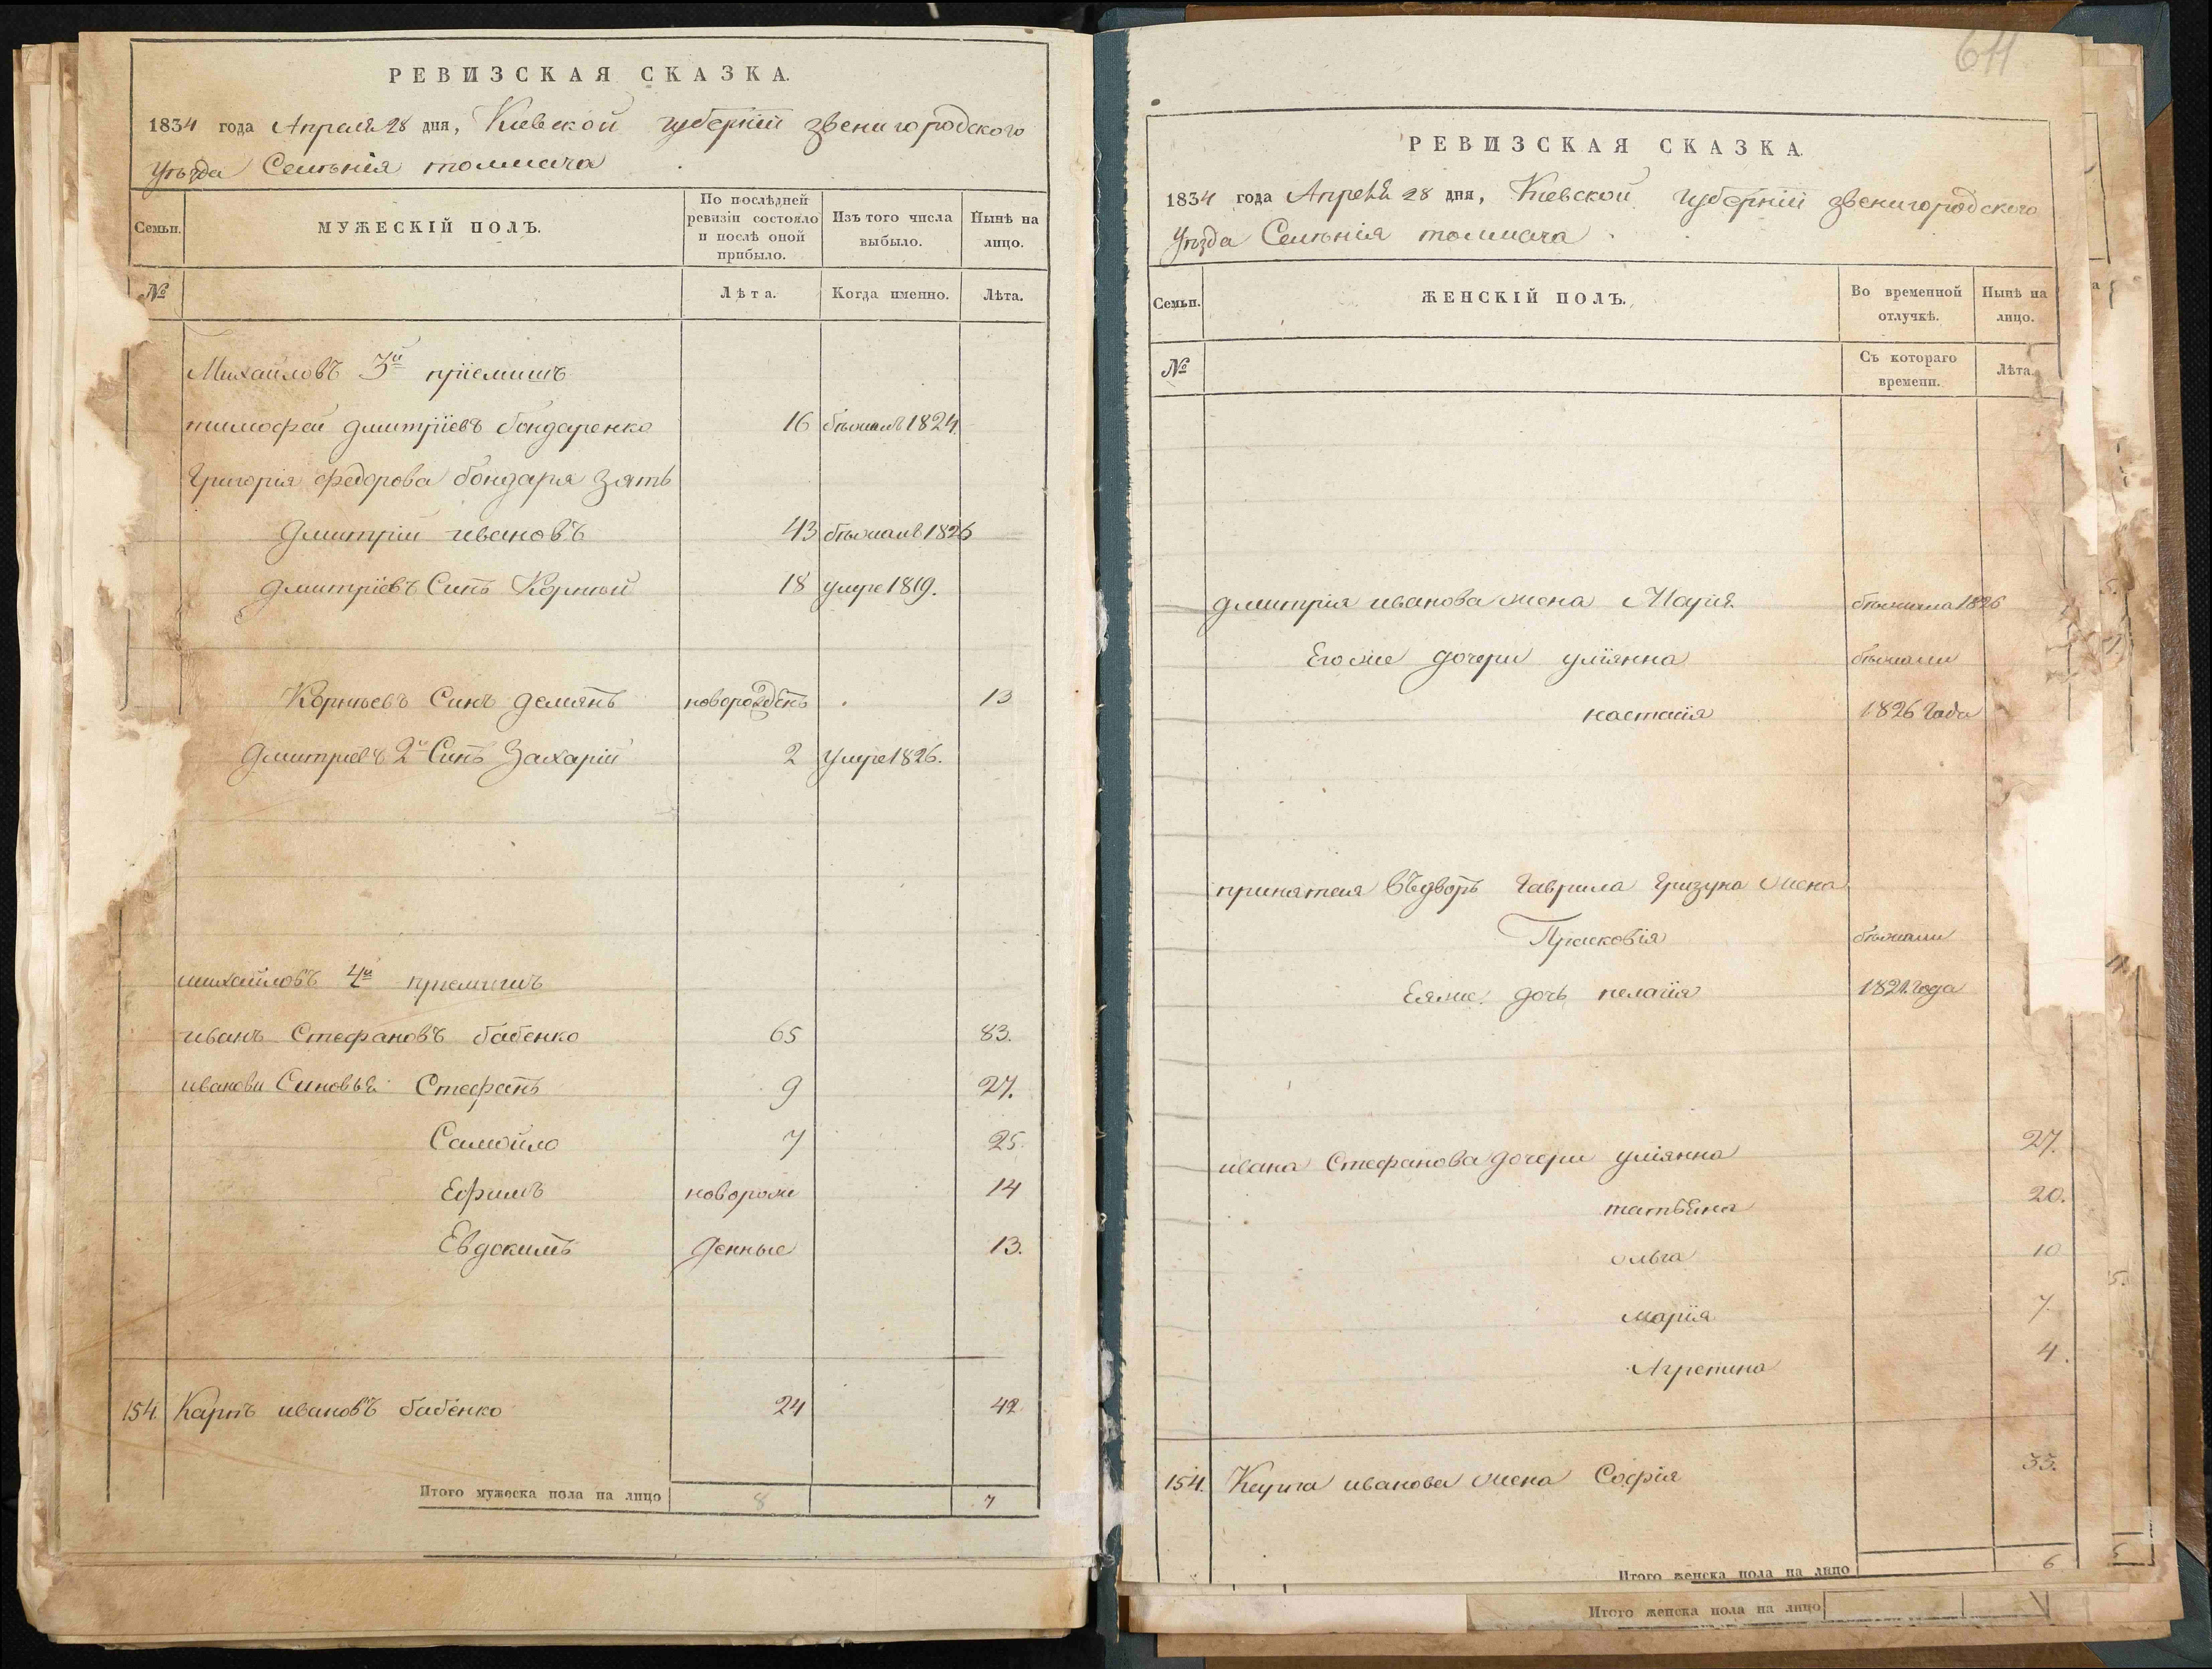 РЕВИЗСКАЯ СКАЗКА.
1834 года Апреля 28 дня, Киевской губернии звенигородского
Уѣзда Селѣнія толмача
Семьи.
МУЖЕСКІЙ ПОЛЪ.
По послѣдней ревизіи состояло и послѣ оной прибыло.
Изъ того числа выбыло.
Нынѣ на лицо.
№
Лѣта.
Когда именно.
Лѣта.
Михайловъ 3й пріемишъ
тимофей дмитріевъ бондаренко 16 бѣжалъ 1824.
Григорія федорова бондаря зять
Дмитрій ивановъ 43 бѣжалъ 1826
Дмитріевъ Синъ Корній 18 умре 1819.
Корнѣевъ Синъ демянъ новорожденъ 13
Дмитріевъ 2й Синъ Захарій 2 умре 1826.
михайловъ 4й приемишъ
иванъ Стефановъ бабенко 65 83.
иванови Синовья Стефанъ 9 27.
Самойло 7 25.
Ефимъ новорож 14
Евдокимъ денные 13.
154. Карпъ ивановъ бабенко 24 42
Итого мужеска пола на лицо 8 7
611
РЕВИЗСКАЯ СКАЗКА.
1834 года Апреля 28 дня, Киевской губерніи звенигородского
Уѣзда Селѣнія толмача
Семьи.
ЖЕНСКІЙ ПОЛЪ.
Во временной отлучкѣ.
Нынѣ на лицо.
№
Съ котораго времени.
Лѣта.
дмитрія иванова жена Марія бѣжала 1826
Егоже дочери уліянна бѣжали
настасія 1826 года
принятая въ дворъ Гаврила Гризуна жена
Прасковія бѣжали
Еяже дочь пелагія 1821 года
ивана Стефанова дочери уліянна 27.
татьяна 20.
ольга 10
марія 7.
Агрепина 4.
154. Карпа иванова жена Софія 33.
Итого женска пола на лицо 6
Итого женска пола на лицо